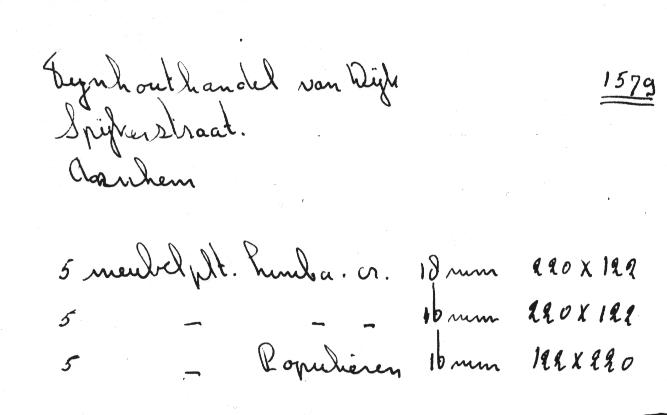 Fynhouthandel van Dijk 1579
Spijkerstraat.
Arnhem
5 meubelplt. Limba. cr. 18 mm 220 X 122
5 - - - 16 mm 220 X 122
5 - Populieren 16 mm 122 X 220